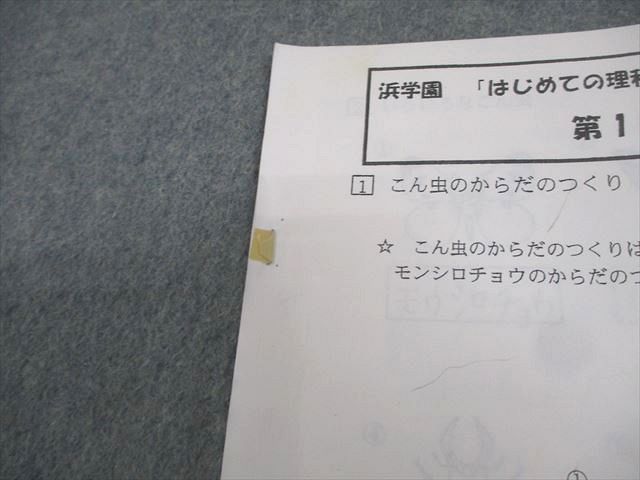 浜学園 「はじめての理科
第1
1 こん虫のからだのつくり
☆ こん虫のからだのつくりは
モンシロチョウのからだのつ
モンシロチョウ
①